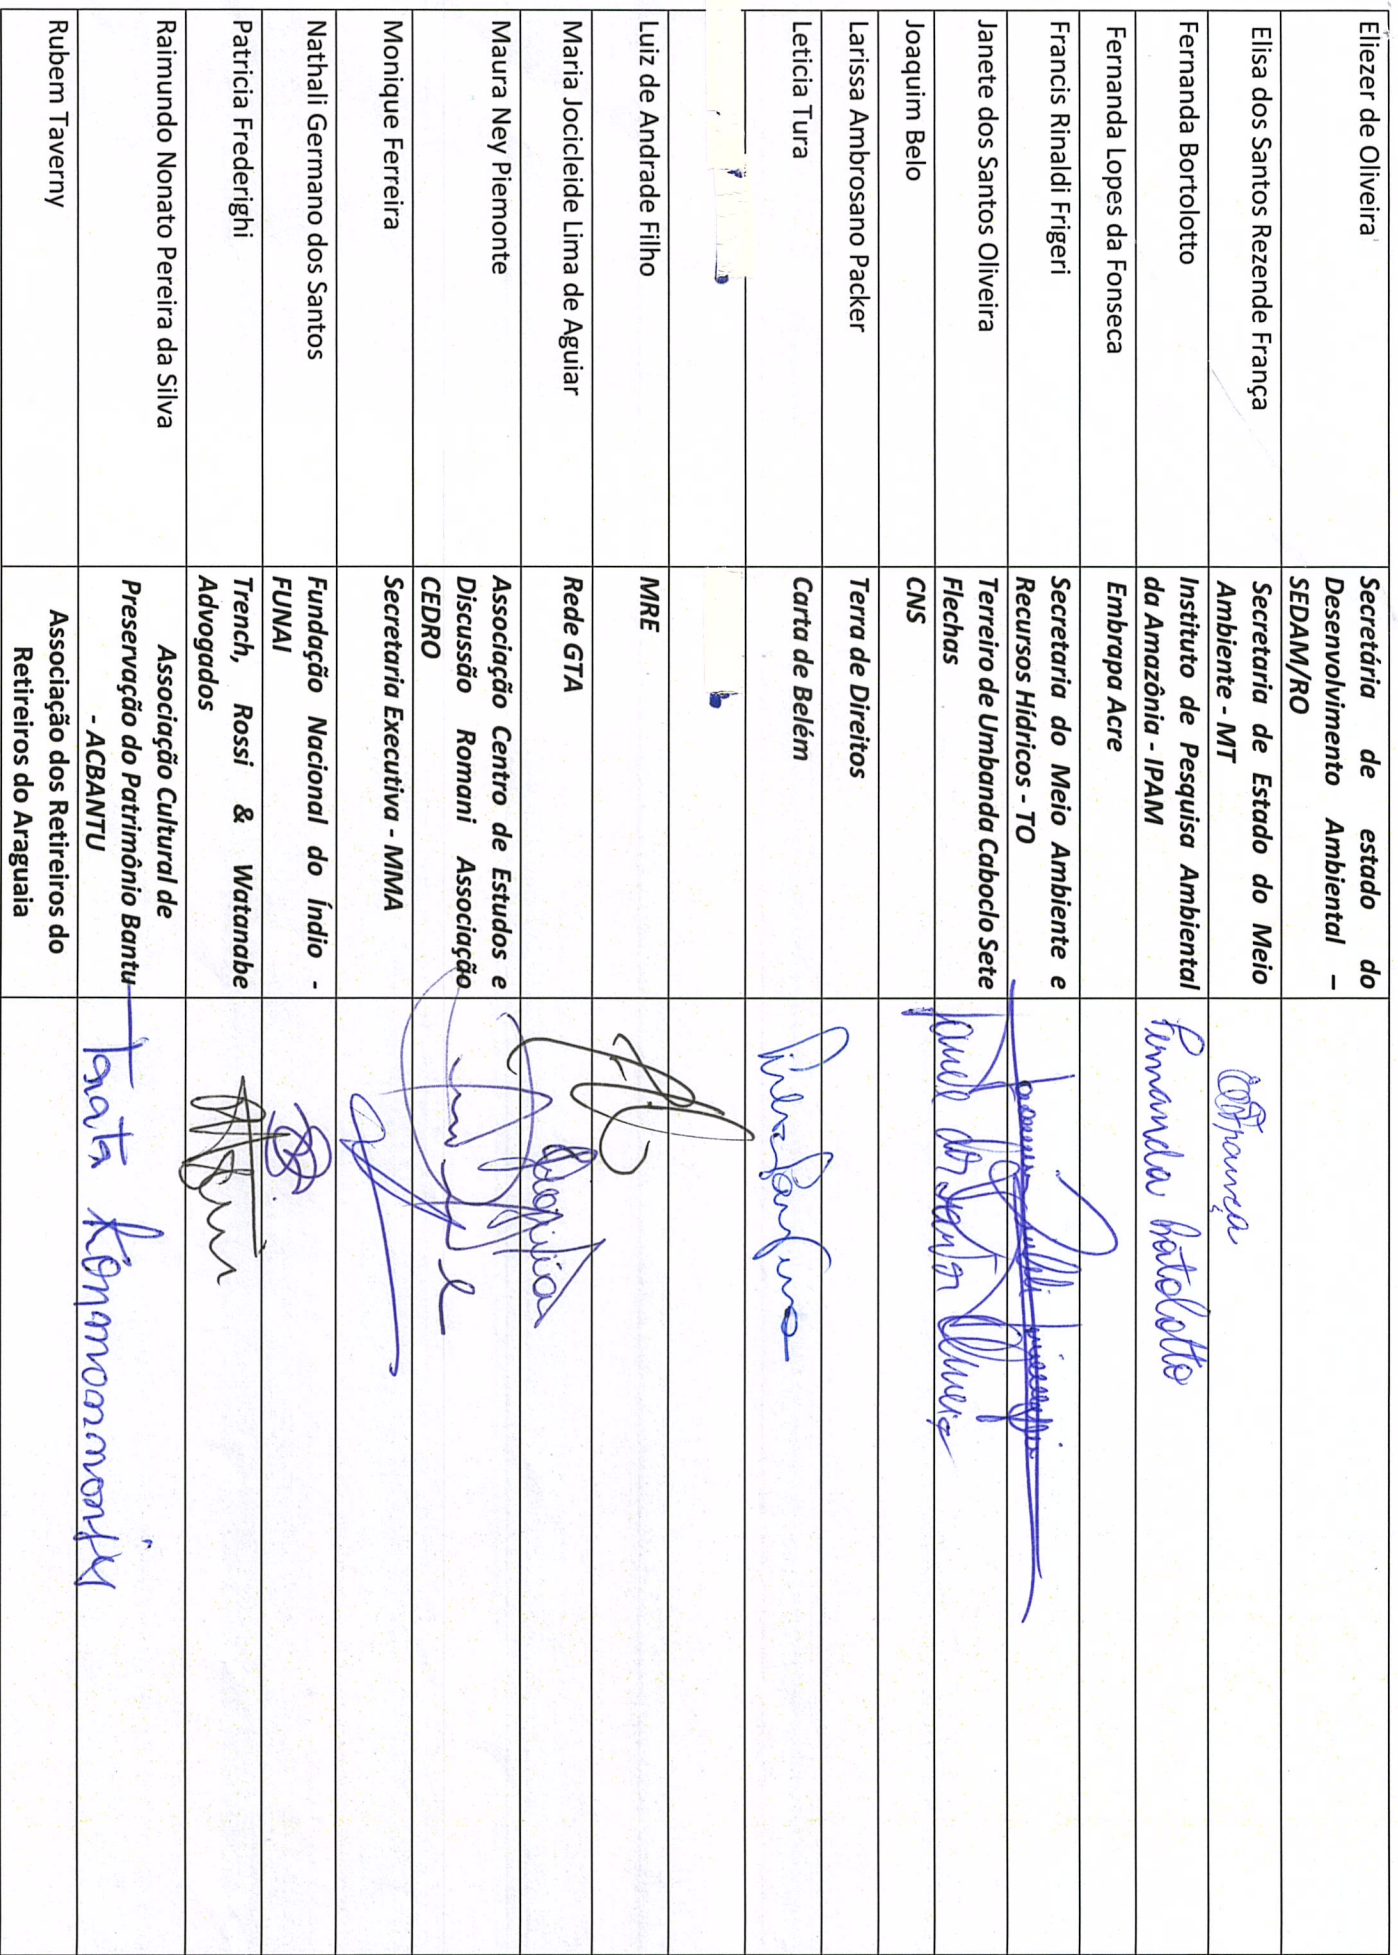 Eliezer de Oliveira
Secretária de estado do
Desenvolvimento Ambiental –
SEDAM/RO
Elisa dos Santos Rezende França
Secretaria de Estado do Meio
Ambiente - MT
França
Fernanda Bortolotto
Instituto de Pesquisa Ambiental
da Amazônia - IPAM
Fernanda Bortolotto
Fernanda Lopes da Fonseca
Embrapa Acre
Francis Rinaldi Frigeri
Secretaria do Meio Ambiente e
Recursos Hídricos - TO
Janete dos Santos Oliveira
Terreiro de Umbanda Caboclo Sete
Flechas
Janete dos Santos Oliveira
Joaquim Belo
CNS
Larissa Ambrosano Packer
Terra de Direitos
Leticia Tura
Carta de Belém
Luiz de Andrade Filho
MRE
Maria Jocicleide Lima de Aguiar
Rede GTA
Maura Ney Piemonte
Associação Centro de Estudos e
Discussão Romani Associação
CEDRO
Monique Ferreira
Secretaria Executiva - MMA
Nathali Germano dos Santos
Fundação Nacional do Índio -
FUNAI
Patricia Frederighi
Trench, Rossi & Watanabe
Advogados
Raimundo Nonato Pereira da Silva
Associação Cultural de
Preservação do Patrimônio Bantu
- ACBANTU
Rubem Taverny
Associação dos Retireiros do
Retireiros do Araguaia